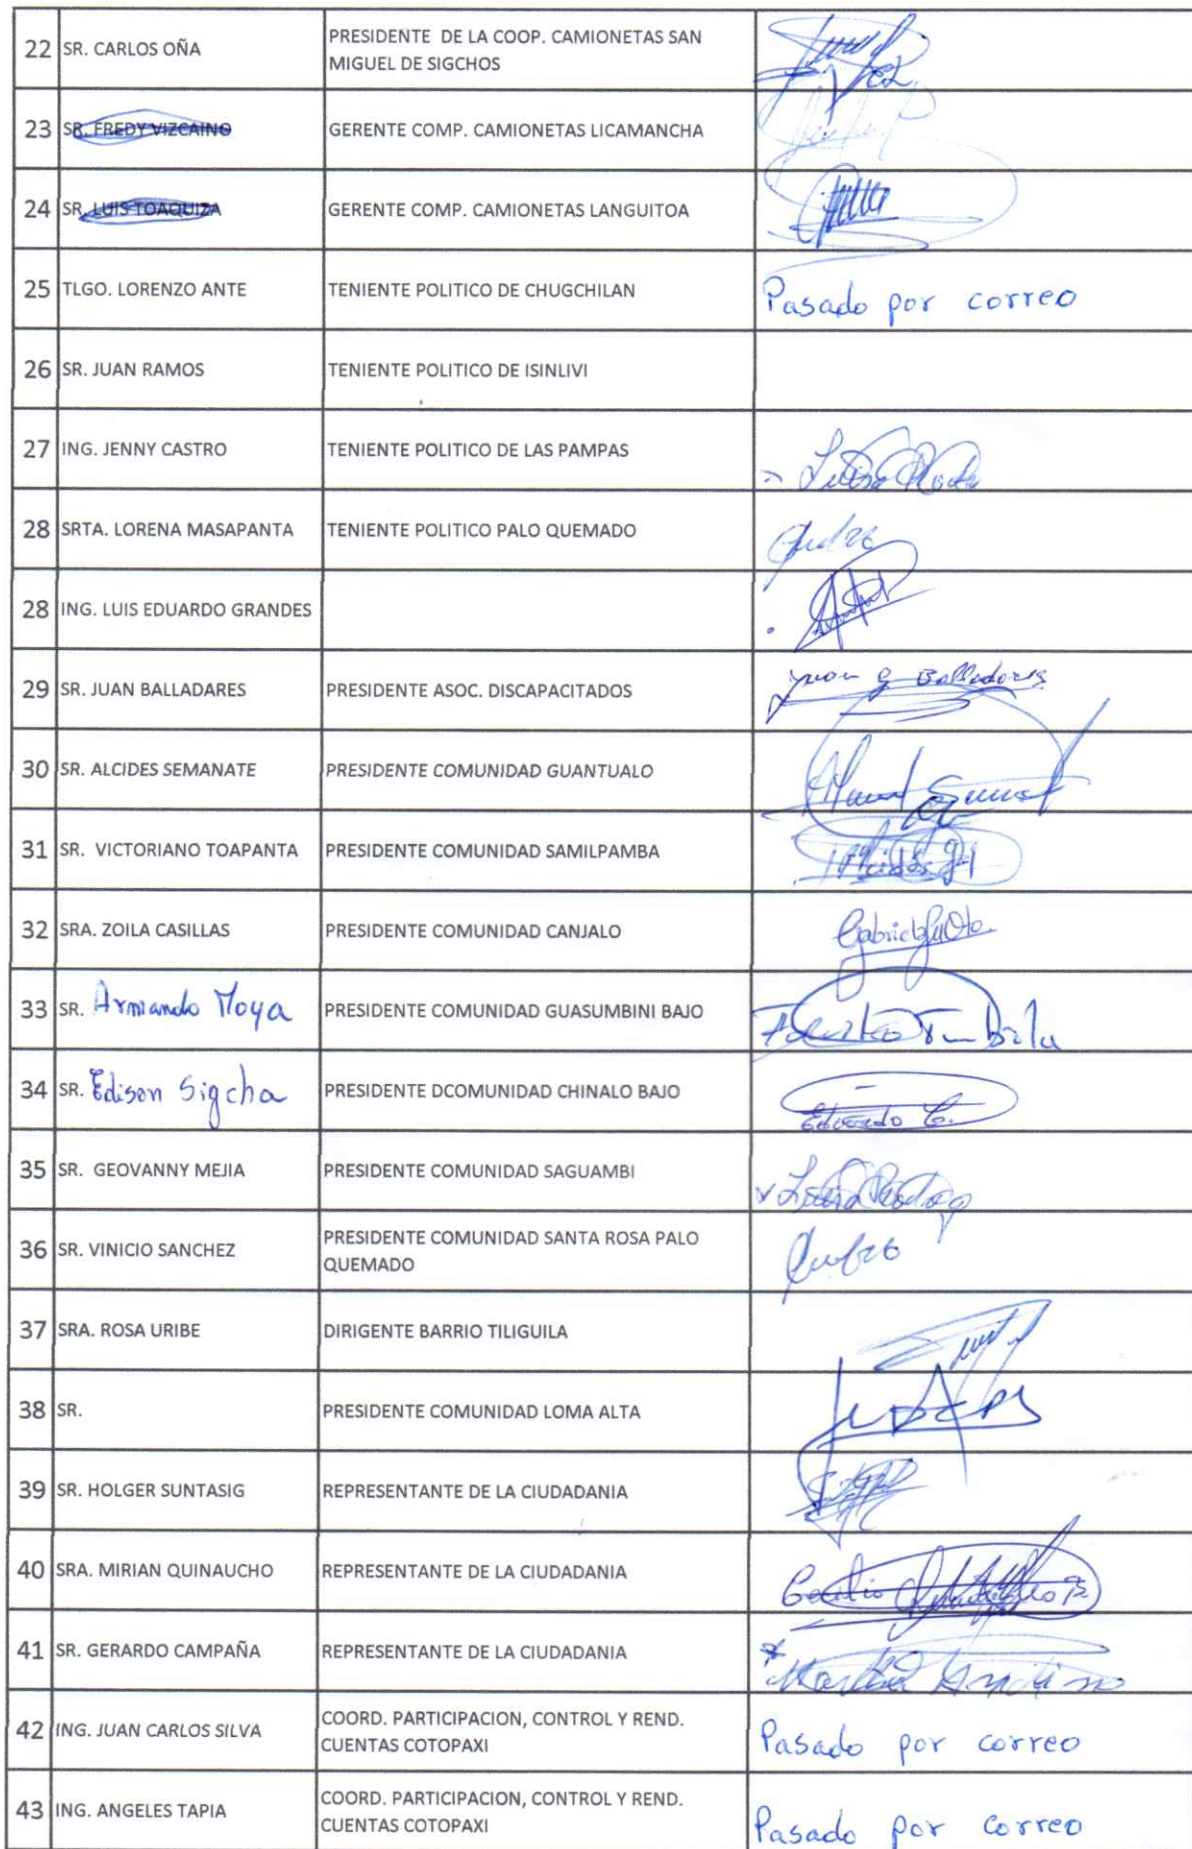 22 SR. CARLOS OÑA PRESIDENTE DE LA COOP. CAMIONETAS SAN
MIGUEL DE SIGCHOS
23 SR. FREDY VIZCAINO GERENTE COMP. CAMIONETAS LICAMANCHA
24 SR. LUIS TOAQUIZA GERENTE COMP. CAMIONETAS LANGUITOA
25 TLGO. LORENZO ANTE TENIENTE POLITICO DE CHUGCHILAN Pasado por correo
26 SR. JUAN RAMOS TENIENTE POLITICO DE ISINLIVI
27 ING. JENNY CASTRO TENIENTE POLITICO DE LAS PAMPAS
28 SRTA. LORENA MASAPANTA TENIENTE POLITICO PALO QUEMADO
28 ING. LUIS EDUARDO GRANDES
29 SR. JUAN BALLADARES PRESIDENTE ASOC. DISCAPACITADOS
30 SR. ALCIDES SEMANATE PRESIDENTE COMUNIDAD GUANTUALO
31 SR. VICTORIANO TOAPANTA PRESIDENTE COMUNIDAD SAMILPAMBA
32 SRA. ZOILA CASILLAS PRESIDENTE COMUNIDAD CANJALO
33 SR. Armando Moya PRESIDENTE COMUNIDAD GUASUMBINI BAJO
34 SR. Edison Sigcha PRESIDENTE DCOMUNIDAD CHINALO BAJO
35 SR. GEOVANNY MEJIA PRESIDENTE COMUNIDAD SAGUAMBI
36 SR. VINICIO SANCHEZ PRESIDENTE COMUNIDAD SANTA ROSA PALO
QUEMADO
37 SRA. ROSA URIBE DIRIGENTE BARRIO TILIGUILA
38 SR. PRESIDENTE COMUNIDAD LOMA ALTA
39 SR. HOLGER SUNTASIG REPRESENTANTE DE LA CIUDADANIA
40 SRA. MIRIAN QUINAUCHO REPRESENTANTE DE LA CIUDADANIA
41 SR. GERARDO CAMPAÑA REPRESENTANTE DE LA CIUDADANIA
42 ING. JUAN CARLOS SILVA COORD. PARTICIPACION, CONTROL Y REND.
CUENTAS COTOPAXI Pasado por correo
43 ING. ANGELES TAPIA COORD. PARTICIPACION, CONTROL Y REND.
CUENTAS COTOPAXI Pasado por correo